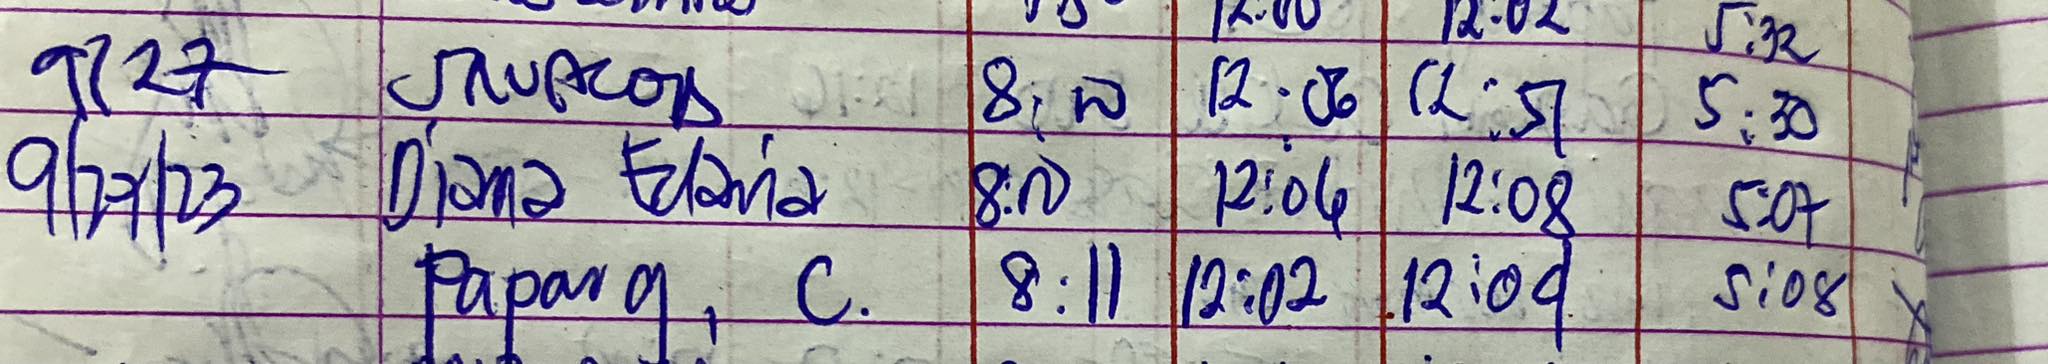 12:00 12:02 5:32
9/27 8:10 12:06 12:51 5:30
9/27/23 Diana Edaria 8:10 12:06 12:08 5:07
Paparg, C. 8:11 12:02 12:09 5:08